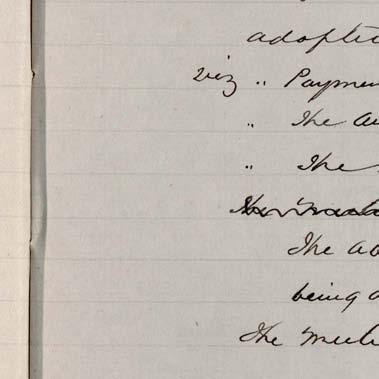 adopted
viz " Paymen
" The au
" The
The ab
being a
The meeti